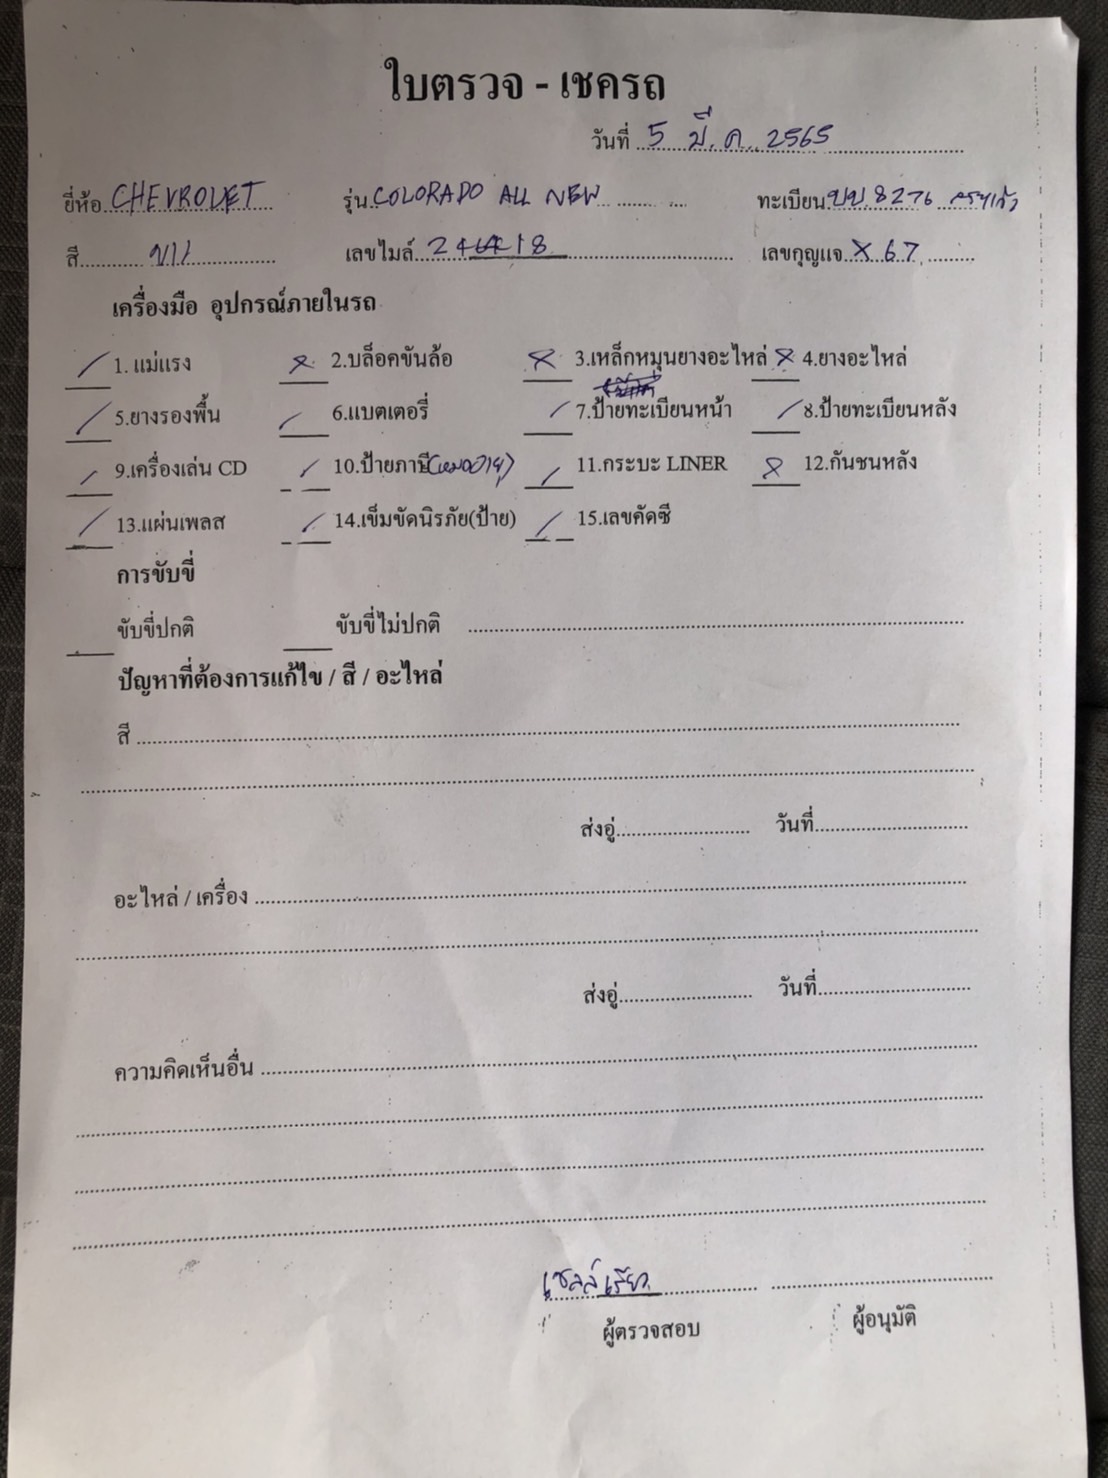 ใบตรวจ - เชครถ
วันที่ 5 มี.ค. 2565
ยี่ห้อ CHEVROLET รุ่น COLORADO ALL NEW ทะเบียน 8276
สี เลขไมล์ เลขกุญแจ X 67
เครื่องมือ อุปกรณ์ภายในรถ
1. แม่แรง 2.บล็อคขันล้อ 3.เหล็กหมุนยางอะไหล่ 4.ยางอะไหล่
5.ยางรองพื้น 6.แบตเตอรี่ 7.ป้ายทะเบียนหน้า 8.ป้ายทะเบียนหลัง
9.เครื่องเล่น CD 10.ป้ายภาษี(หมดอายุ) 11.กระบะ LINER 12.กันชนหลัง
13.แผ่นเพลส 14.เข็มขัดนิรภัย(ป้าย) 15.เลขคัดซี
การขับขี่
ขับขี่ปกติ ขับขี่ไม่ปกติ
ปัญหาที่ต้องการแก้ไข / สี / อะไหล่
สี
ส่งอู่ วันที่
อะไหล่ / เครื่อง
ส่งอู่ วันที่
ความคิดเห็นอื่น
ผู้ตรวจสอบ ผู้อนุมัติ